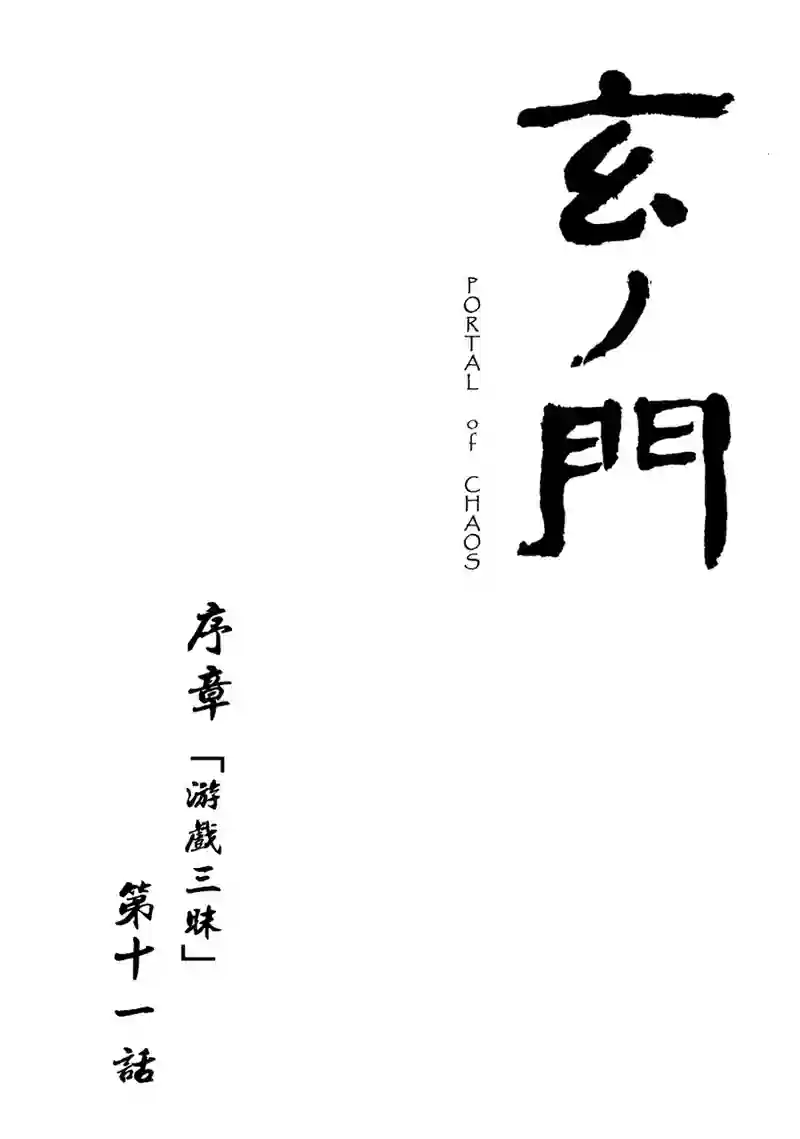 玄ノ門
PORTAL of CHAOS
序章「游戲三昧」
第十一話